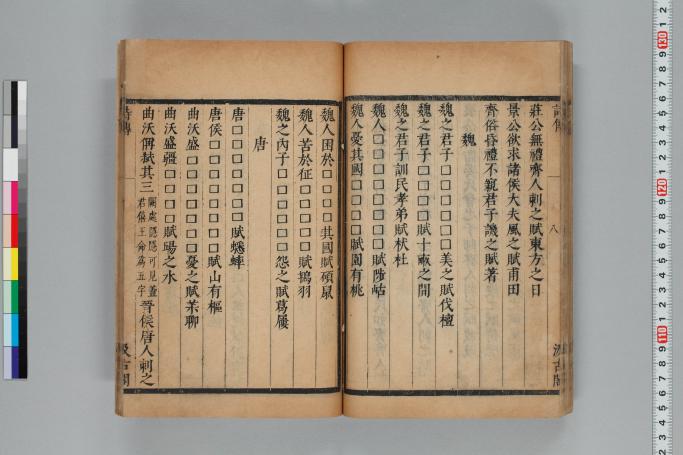 詩傳
莊公無禮齊人刺之賦東方之日
景公欲求諸侯大夫風之賦甫田
齊俗昏禮不親君子譏之賦著
魏
魏之君子□□□□□美之賦伐檀
魏之君子□□□□□賦十畝之間
魏之君子訓民孝弟賦杕杜
魏人□□□□□□□賦陟岵
魏人憂其國□□□□□賦園有桃
八
汲古閣
魏人困於□□□□其國賦碩鼠
魏人苦於征□□□□賦鴇羽
魏之內子□□□□□怨之賦葛屨
唐
唐□□□□□□賦蟋蟀
唐侯□□□□□賦山有樞
曲沃盛□□□□□憂之賦茉聊
曲沃盛疆□□□□賦暘之水
曲沃偁弑其三闕處隱隱可見蓋君僖王命爲五字晉侯唐人刺之
詩傳
汲古閣
130
120
110